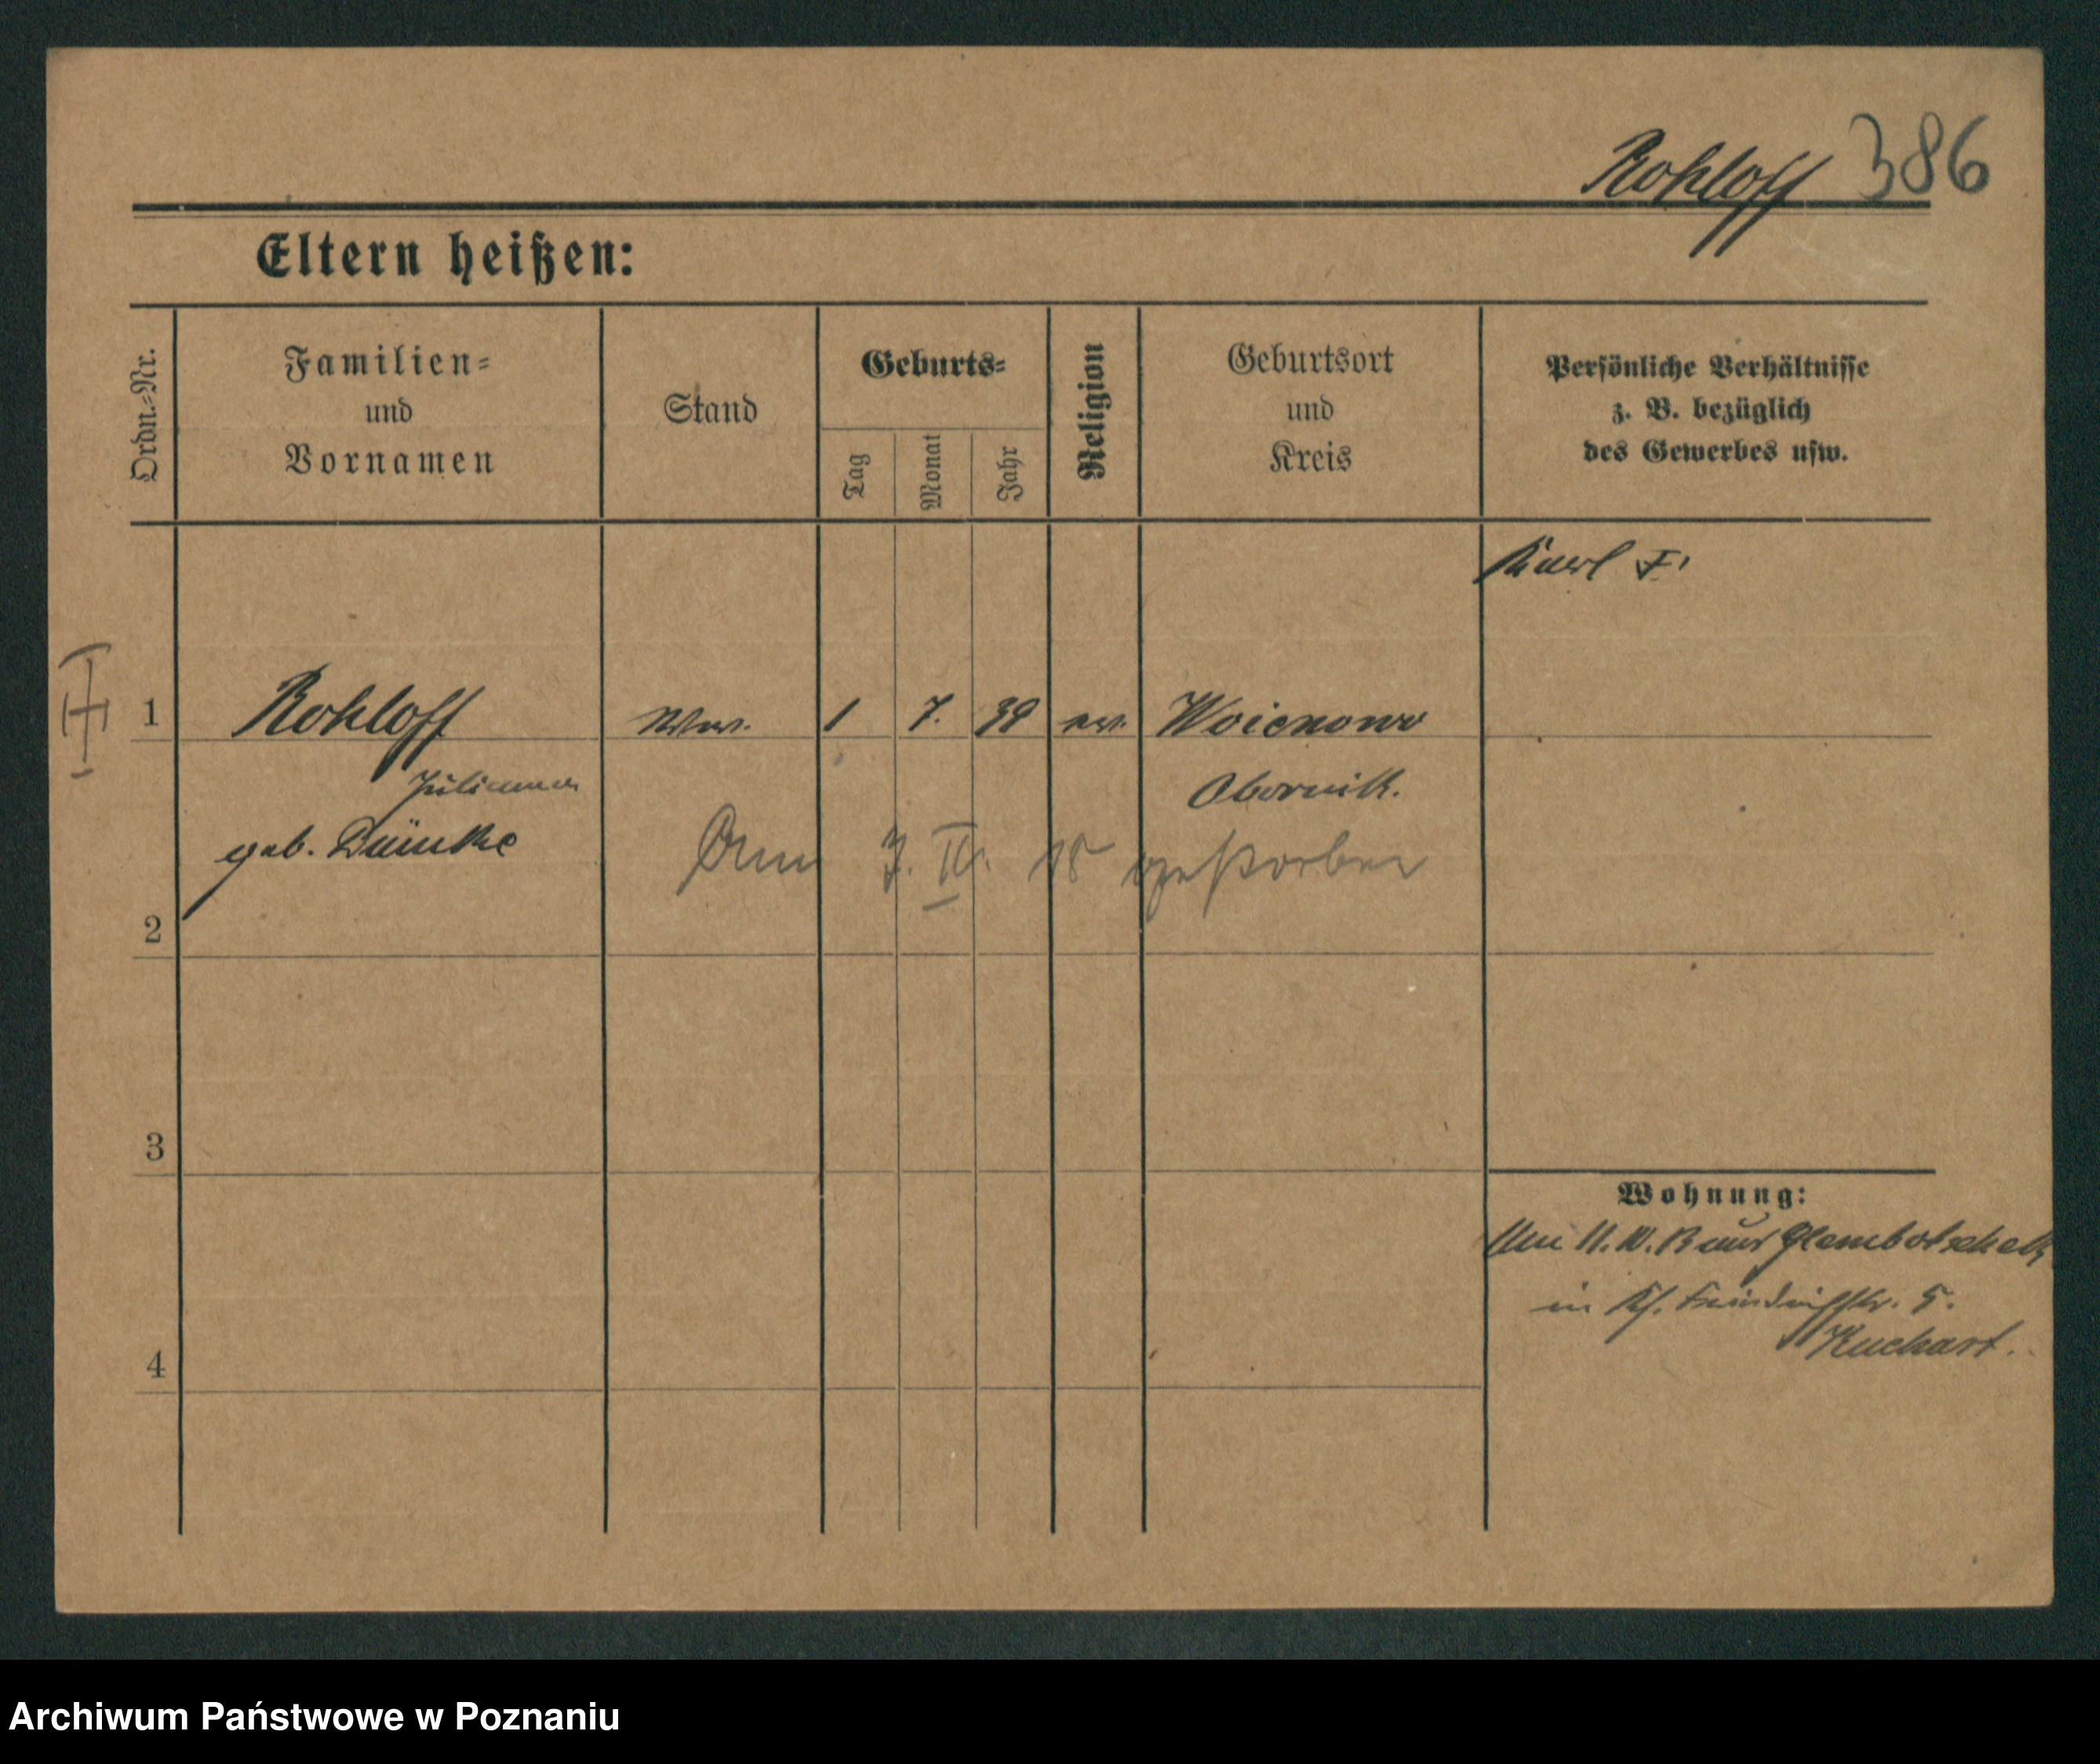 Rohloff 386
Eltern heißen:
Ordn.-Nr.
Familien-
und
Vornamen
Stand
Geburts-
Tag
Monat
Jahr
Religion
Geburtsort
und
Kreis
Persönliche Verhältnisse
z. B. bezüglich
des Gewerbes usw.
Karl
1 Rohloff Ww. 1 7. 39 ev. Woienowo
Julianna Obornik.
geb. Dümke
7. IV. 18 gestorben
2
3
4
Wohnung:
11. 10. 13 aus Glembotschek
in Friedrichstr. 5.
Kuchart.
Archiwum Państwowe w Poznaniu